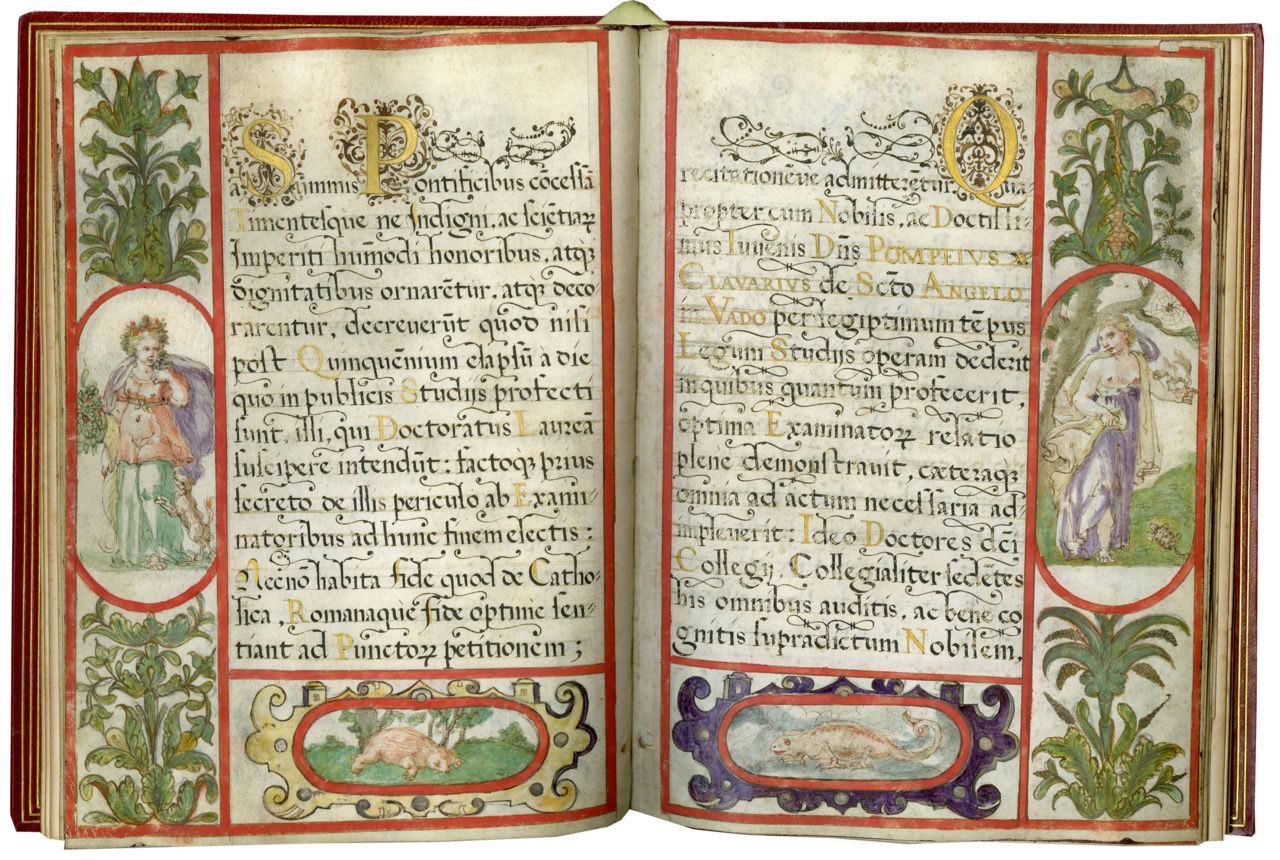 a Summis Pontificibus cōcessā
Timentesque ne Indigni, ac scientiaꝝ
Imperiti hum̄odi honoribus, atqꝫ
dignitatibus ornarētur, atqꝫ deco
rarentur, decreverūt quod nisi
post Quinquēnium elapsū à die
quo in publicis Studijs profecti
sunt, illi, qui Doctoratus Laureā
suscipere intendūt: factoqꝫ prius
secreto de illis periculo ab Exami-
natoribus ad hunc finem electis:
Necnō habita fide quod de Catho-
lica, Romanaque fide optime sen-
tiant ad Punctoꝝ petitionem;
recitationēve admitterētur. Qua-
propter cum Nobilis, ac Doctissi-
mus Iuvenis Dn̄s POMPEIVS
CLAVARIVS de Sct̄o ANGELO
in VADO per legiptimum tēpus
Legum Studijs operam dederit
in quibus quantum profecerit,
optima Examinatoꝝ relatio
plene demonstravit, cæteraqꝫ
omnia ad actum necessaria ad-
impleverit: Ideo Doctores dc̄i
Collegij, Collegialiter sedētes
his omnibus auditis, ac bene co
gnitis supradictum Nobilem,